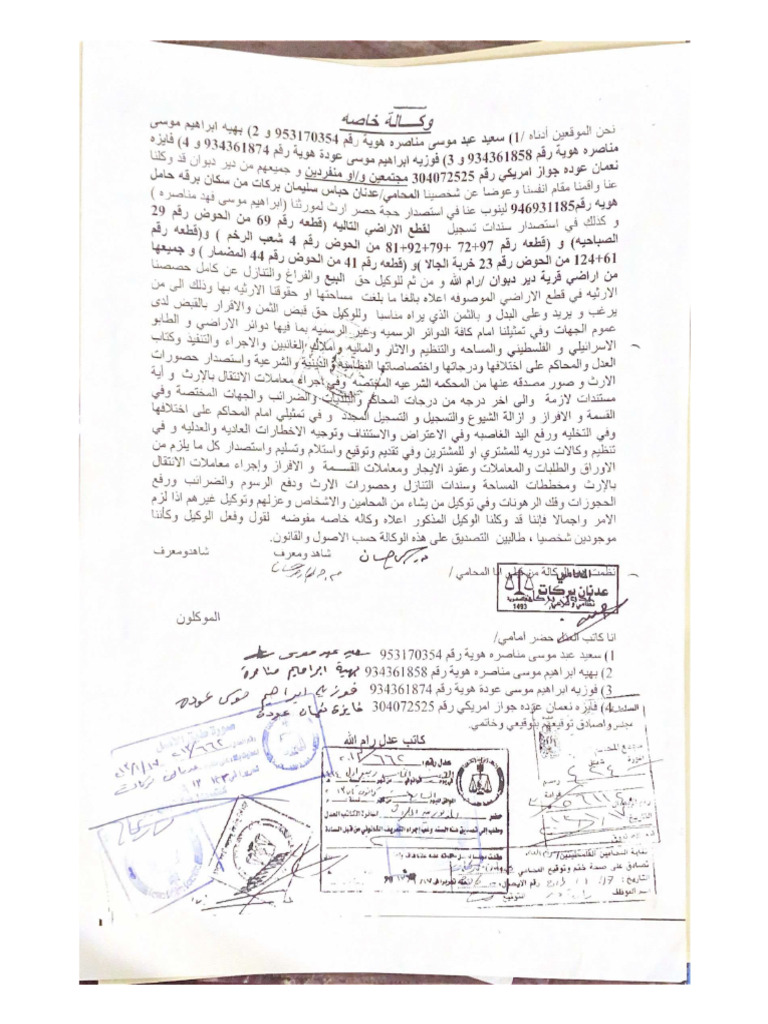 وكـــالة خاصه
نحن الموقعين أدناه /1) سعيد عبد موسى مناصره هوية رقم 953170354 و 2) بهيه ابراهيم موسى
مناصره هوية رقم 934361858 و 3) فوزيه ابراهيم موسى عودة هوية رقم 934361874 و 4) فايزه
نعمان عوده جواز امريكي رقم 304072525 مجتمعين و/او منفردين و جميعهم من دير دبوان قد وكلنا
عنا واقمنا مقام انفسنا وعوضا عن شخصينا المحامي/عدنان حباس سليمان بركات من سكان برقه حامل
هويه رقم946931185 لينوب عنا في استصدار حجة حصر ارث لمورثنا (ابراهيم موسى فهد مناصره )
و كذلك في استصدار سندات تسجيل لقطع الاراضي التاليه (قطعه رقم 69 من الحوض رقم 29
الصباحيه) و (قطعه رقم 97+72 +79+92+81 من الحوض رقم 4 شعب الرخم ) و(قطعه رقم
61+124 من الحوض رقم 23 خربة الجالا )و( قطعه رقم 41 من الحوض رقم 44 المضمار ) و جميعها
من اراضي قرية دير دبوان /رام الله و من ثم للوكيل حق البيع والفراغ والتنازل عن كامل حصصنا
الارثيه في قطع الاراضي الموصوفه اعلاه بالغا ما بلغت مساحتها او حقوقنا الارثيه بها وذلك الى من
يرغب و يريد وعلى البدل و بالثمن الذي يراه مناسبا وللوكيل حق قبض الثمن والاقرار بالقبض لدى
عموم الجهات وفي تمثيلنا امام كافة الدوائر الرسميه وغير الرسميه بما فيها دوائر الاراضي و الطابو
الاسرائيلي و الفلسطيني والمساحه والتنظيم والاثار والماليه واملاك الغائبين والاجراء والتنفيذ وكتاب
العدل والمحاكم على اختلافها ودرجاتها واختصاصاتها النظاميه والدينية والشرعية واستصدار حصورات
الارث و صور مصدقه عنها من المحكمه الشرعيه المختصه وفي إجراء معاملات الانتقال بالإرث و أية
مستندات لازمة والى اخر درجه من درجات المحاكم والبلديات والضرائب والجهات المختصة وفي
القسمة و الافراز و ازالة الشيوع والتسجيل و التسجيل المجدد و في تمثيلي امام المحاكم على اختلافها
وفي التخليه ورفع اليد الغاصبه وفي الاعتراض والاستئناف وتوجيه الاخطارات العاديه والعدليه و في
تنظيم وكالات دوريه للمشتري او للمشترين وفي تقديم وتوقيع واستلام وتسليم واستصدار كل ما يلزم من
الاوراق والطلبات والمعاملات وعقود الايجار ومعاملات القسمة و الافراز وإجراء معاملات الانتقال
بالإرث ومخططات المساحة وسندات التنازل وحصورات الارث ودفع الرسوم والضرائب ورفع
الحجوزات وفك الرهونات وفي توكيل من يشاء من المحامين والاشخاص وعزلهم وتوكيل غيرهم اذا لزم
الامر واجمالا فإننا قد وكلنا الوكيل المذكور اعلاه وكاله خاصه مفوضه لقول وفعل الوكيل وكأننا
موجودين شخصيا ، طالبين التصديق على هذه الوكالة حسب الاصول والقانون.
شاهدومعرف شاهدومعرف
نظمت الوكالة من قبلي انا المحامي /
المحامي
عدنان بركات
1493
الموكلون
انا كاتب العدل حضر امامي/
1) سعيد عبد موسى مناصره هوية رقم 953170354
2) بهيه ابراهيم موسى مناصره هوية رقم 934361858 بهية ابراهيم مناصرة
3) فوزيه ابراهيم موسى عودة هوية رقم 934361874 فوزيه ابراهيم موسى عوده
4) فايزه نعمان عوده جواز امريكي رقم 304072525 فايزة نعمان عودة
واصادق توقيعهم بتوقيعي وخاتمي.
كاتب عدل رام الله
عدل رقم:
حضر
لدائرة الكاتب العدل
وطلب إلي تصديق هذا السند وبعد إجراء التعريف القانوني من قبل السادة
نقابة المحامين الفلسطينيين
تصادق على صحة ختم وتوقيع المحامي
التاريخ:
رقم الايصال
اسم الموظف
التوقيع